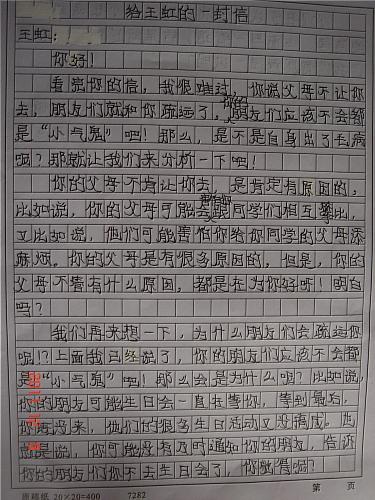 给王虹的一封信
王虹：
你好！
看完你的信，我很难过，你说父母不让你
去，朋友们就和你疏远了，你的朋友们应该不会都
是“小气鬼”吧！那么，是不是自身出了毛病
呢？那就让我们来分析一下吧！
你的父母不肯让你去，是肯定有原因的，
比如说，你的父母可能会跟同学们相互攀比，
又比如说，他们可能害怕你给你同学的父母添
麻烦。你的父母是有很多原因的，但是，你的
父母不管有什么原因，都是在为你好呀！明白
吗？
我们再来想一下，为什么朋友们会疏远你
呢！？上面我已经说了，你的朋友们应该不会都
是“小气鬼”吧！那么会是为什么呢？比如说，
你的朋友可能生日会一直在等你，等到最后，
你再没来，他们的很多生日活动又没搞成。也
就是说，你可能没有及时通知你的朋友，告诉
你的朋友们你不去生日会了，你就有呢？
原稿纸 20×20=400 7282 第 页